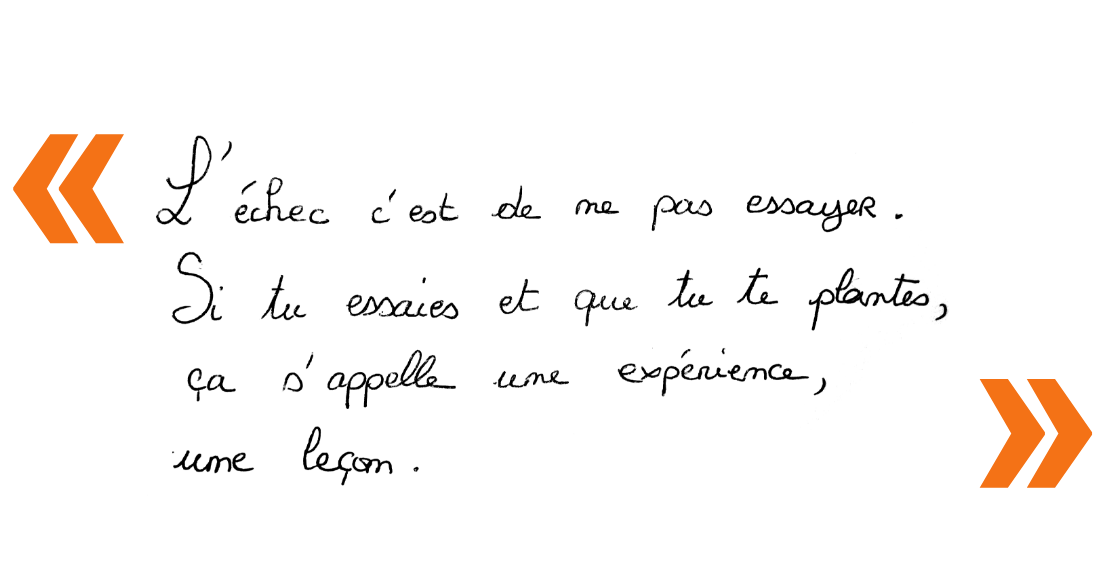 « L'échec c'est de ne pas essayer.
Si tu essaies et que tu te plantes,
ça s'appelle une expérience,
une leçon. »